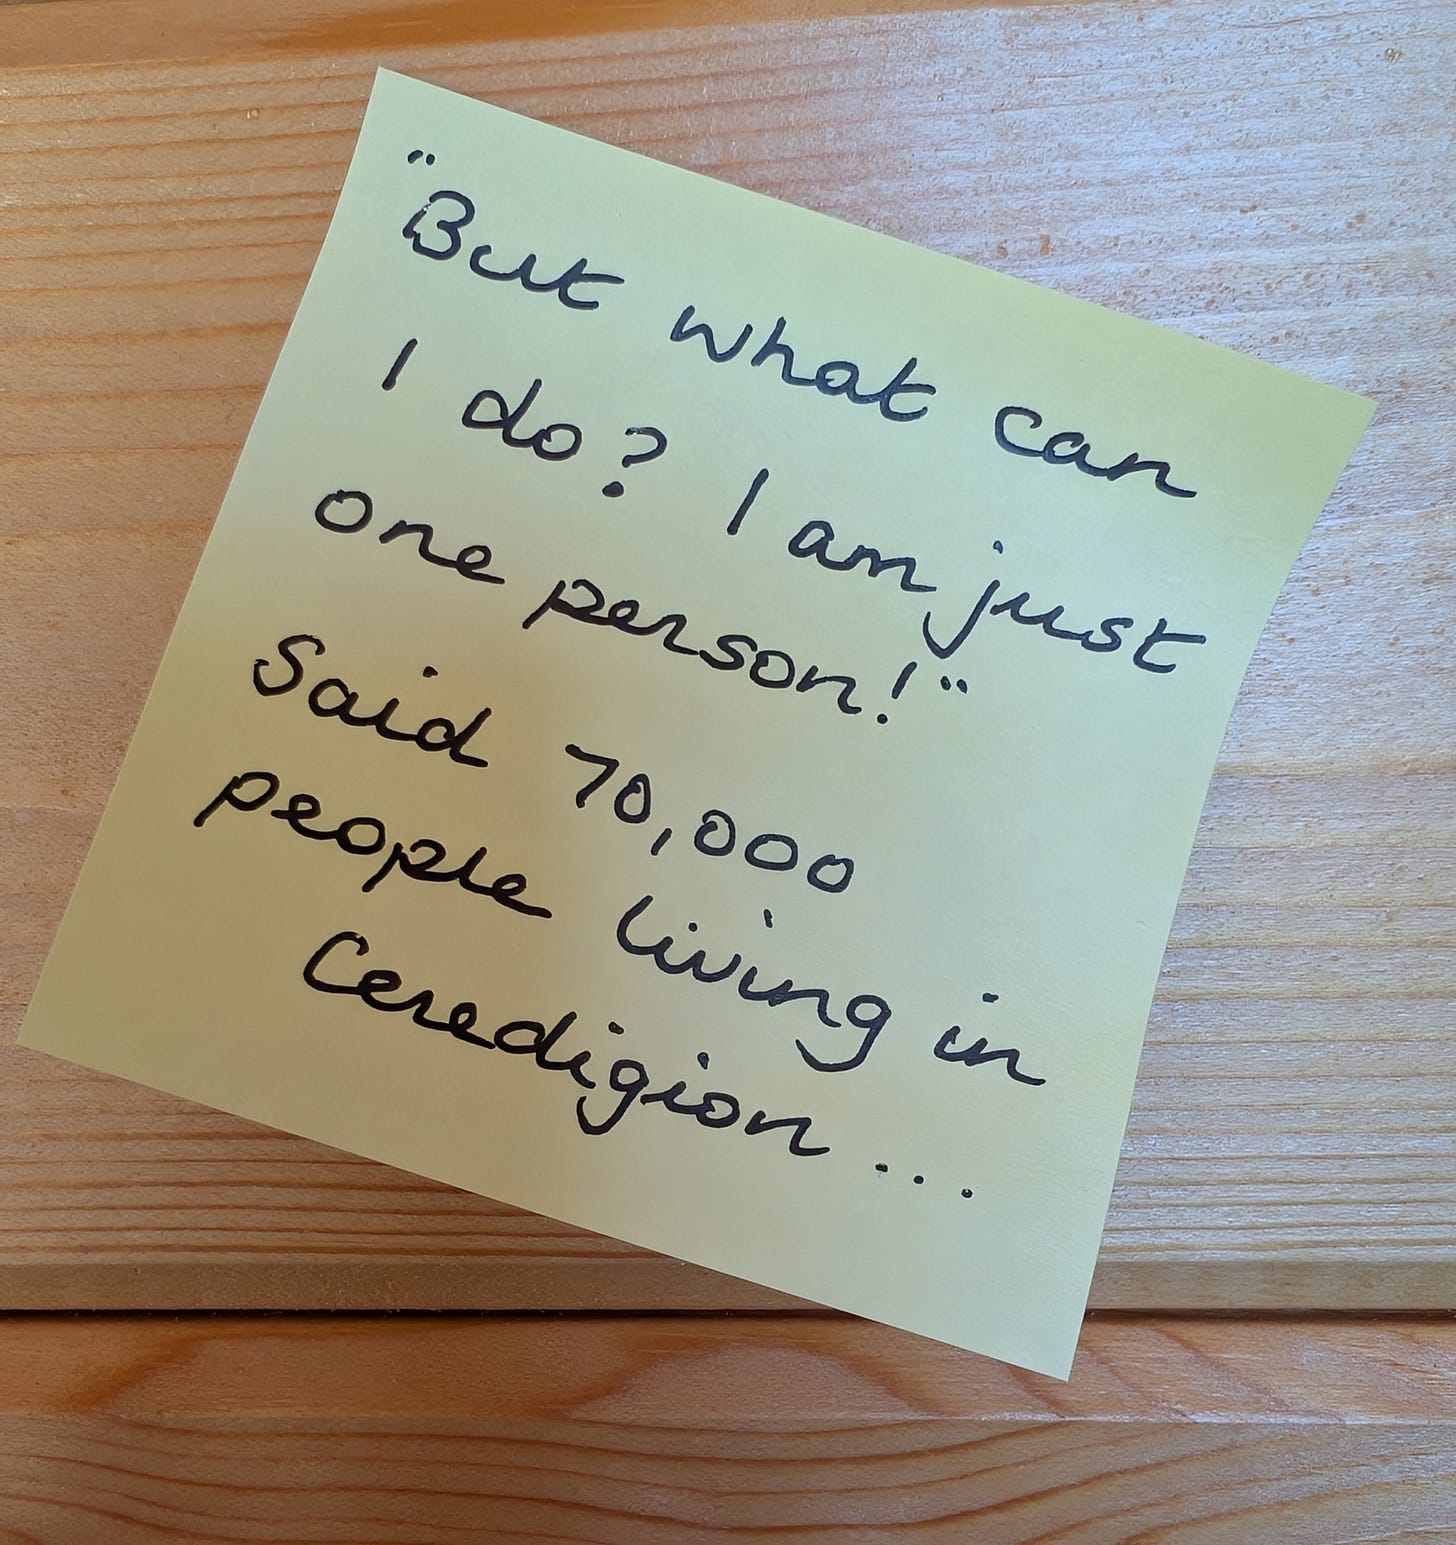 "But what can
I do? I am just
one person!"
Said 70,000
people living in
Ceredigion...